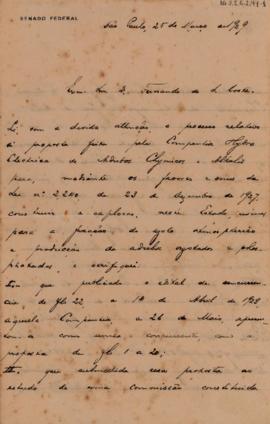 SENADO FEDERAL
São Paulo, 25 de Março de 1929
Exmo Snr D. Fernando de S. Costa.
Li, com a devida attenção, o processo relativo
á proposta feita pela Companhia Hydro
Electrica de Adubos Chymicos e Metaes
para, mediante os favores e onus da
Lei nº 2.240 de 23 de dezembro de 1927,
construir e explorar, neste Estado, usinas
para a fixação do azoto atmospherico
e producção de adubos azotados e phos-
phatados, e verifiquei
que publicado o edital de concurren-
cia, de fls 22, a 14 de Abril de 1928,
aquella Companhia a 26 de Maio, apresen-
tou como concurrente, com a
proposta de fls 1 a 20;
que submettida essa proposta ao
estudo de uma commissão constituida